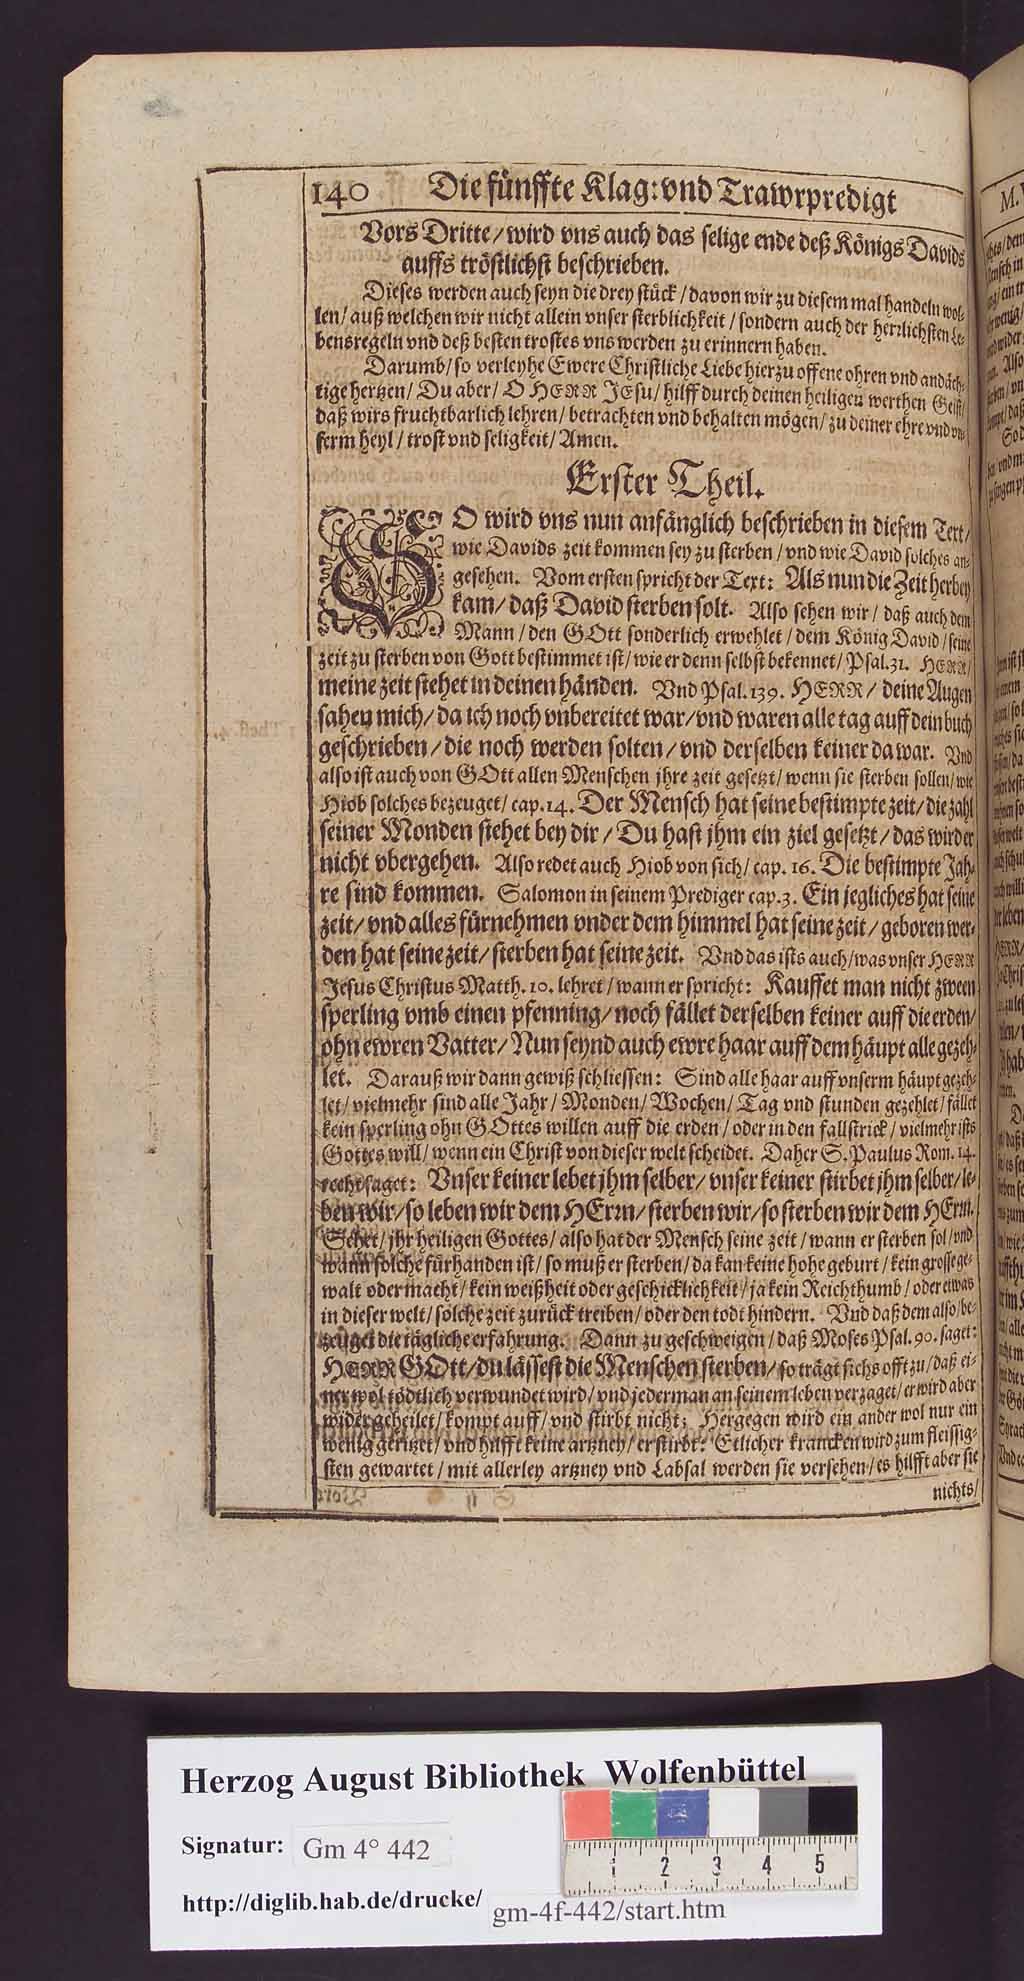 140 Die fünffte Klag: vnd Trawrpredigt
Vors Dritte/ wird vns auch das selige ende deß Königs Davids
auffs tröstlichst beschrieben.
Dieses werden auch seyn die drey stück/ davon wir zu diesem mal handeln wol-
len/ auß welchen wir nicht allein vnser sterblichkeit/ sondern auch der herrlichsten Le-
bensregeln vnd deß besten trostes vns werden zu erinnern haben.
Darumb/ so verleyhe Ewere Christliche Liebe hierzu offene ohren vnd andäch-
tige hertzen/ Du aber/ O HERR JEsu/ hilff durch deinen heiligen werthen Geist/
daß wirs fruchtbarlich lehren/ betrachten vnd behalten mögen/ zu deiner ehre vnd vn-
serm heyl/ trost vnd seligkeit/ Amen.
Erster Theil.
SO wird vns nun anfänglich beschrieben in diesem Text/
wie Davids zeit kommen sey zu sterben/ vnd wie David solches an-
gesehen. Vom ersten spricht der Text: Als nun die Zeit herbey
kam/ daß David sterben solt. Also sehen wir/ daß auch dem
Mann/ den GOtt sonderlich erwehlet/ dem König David/ seine
zeit zu sterben von Gott bestimmet ist/ wie er denn selbst bekennet/ Psal. 31. HERR/
meine zeit stehet in deinen händen. Vnd Psal. 139. HERR/ deine Augen
sahen mich/ da ich noch vnbereitet war/ vnd waren alle tag auff dein buch
geschrieben/ die noch werden solten/ vnd derselben keiner da war. Vnd
also ist auch von GOtt allen Menschen jhre zeit gesetzt/ wenn sie sterben sollen/ wie
Hiob solches bezeuget/ cap. 14. Der Mensch hat seine bestimpte zeit/ die zahl
seiner Monden stehet bey dir/ Du hast jhm ein ziel gesetzt/ das wird er
nicht vbergehen. Also redet auch Hiob von sich/ cap. 16. Die bestimpte Jah-
re sind kommen. Salomon in seinem Prediger cap. 3. Ein jegliches hat seine
zeit/ vnd alles fürnehmen vnder dem himmel hat seine zeit/ geboren wer-
den hat seine zeit/ sterben hat seine zeit. Vnd das ists auch/ was vnser HERR
Jesus Christus Matth. 10. lehret/ wann er spricht: Kauffet man nicht zween
sperling vmb einen pfenning/ noch fället derselben keiner auff die erden/
ohn ewren Vatter/ Nun seynd auch ewre haar auff dem häupt alle gezeh-
let. Darauß wir dann gewiß schliessen: Sind alle haar auff vnserm häupt gezeh-
let/ vielmehr sind alle Jahr/ Monden/ Wochen/ Tag vnd stunden gezehlet/ fället
kein sperling ohn GOttes willen auff die erden/ oder in den fallstrick/ vielmehr ists
Gottes will/ wenn ein Christ von dieser welt scheidet. Daher S. Paulus Rom. 14.
recht saget: Vnser keiner lebet jhm selber/ vnser keiner stirbet jhm selber/ le-
ben wir/ so leben wir dem HErrn/ sterben wir/ so sterben wir dem HErrn.
Sehet/ jhr heiligen Gottes/ also hat der Mensch seine zeit/ wann er sterben sol/ vnd
wann solche fürhanden ist/ so muß er sterben/ da kan keine hohe geburt/ kein grosse ge-
walt oder macht/ kein weißheit oder geschicklichkeit/ ja kein Reichthumb/ oder etwas
in dieser welt/ solche zeit zurück treiben/ oder den todt hindern. Vnd daß dem also/ be-
zeuget die tägliche erfahrung. Dann zu geschweigen/ daß Moses Psal. 90. saget:
HERR GOtt/ du lässest die Menschen sterben/ so trägt sichs offt zu/ daß ei-
ner wol tödtlich verwundet wird/ vnd jederman an seinem leben verzaget/ er wird aber
wider geheilet/ kompt auff/ vnd stirbt nicht; Hergegen wird ein ander wol nur ein
wenig geritzet/ vnd hilfft keine artzney/ er stirbt: Etlicher krancken wird zum fleissig-
sten gewartet/ mit allerley artzney vnd Labsal werden sie versehen/ es hilfft aber sie
nichts/
Herzog August Bibliothek Wolfenbüttel
Signatur: Gm 4° 442
http://diglib.hab.de/drucke/ gm-4f-442/start.htm
1 2 3 4 5